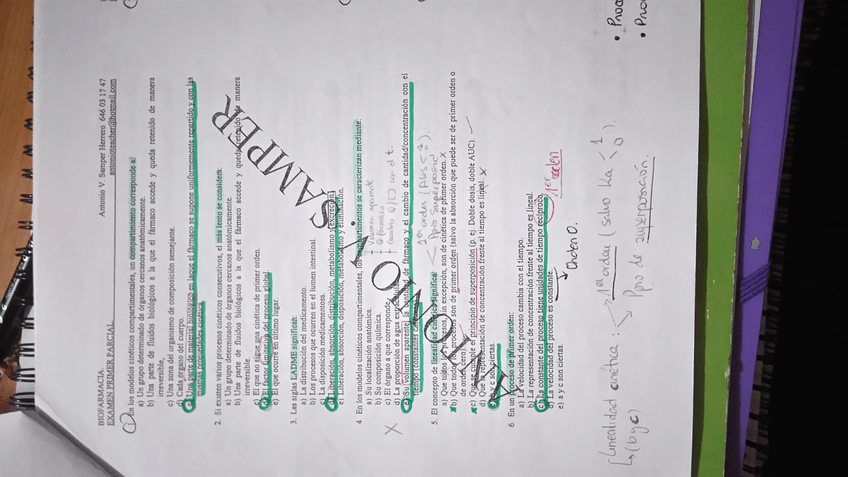 BIOFARMACIA Antonio V. Samper Herrero 646 03 17 47
EXAMEN PRIMER PARCIAL antonioteacher@hotmail.com
1. En los modelos cinéticos compartimentales, un compartimento corresponde a:
a) Un grupo determinado de órganos cercanos anatómicamente.
b) Una parte de fluidos biológicos a la que el fármaco accede y queda retenido de manera
irreversible.
c) Una zona del organismo de composición semejante.
d) Cada órgano del cuerpo.
e) Una parte de material biológico en la que el fármaco se supone uniformemente repartido y con las
mismas propiedades cinéticas
2. Si existen varios procesos cinéticos consecutivos, el más lento se considera:
a) Un grupo determinado de órganos cercanos anatómicamente.
b) Una parte de fluidos biológicos a la que el fármaco accede y queda retenido de manera
irreversible
c) El que no sigue una cinética de primer orden.
d) El factor limitativo del proceso global
e) El que ocurre en último lugar.
3. Las siglas LADME significan:
a) La distribución del medicamento.
b) Los procesos que ocurren en el lumen intestinal.
c) La disposición medicamentosa.
d) Liberación, absorción, distribución, metabolismo y excreción
e) Liberación, absorción, disposición, metabolismo y eliminación.
4. En los modelos cinéticos compartimentales, los compartimentos se caracterizan mediante:
a) Su localización anatómica.
b) Su composición química.
c) El órgano a que corresponde
d) La proporción de agua
e) Su volumen aparente, la cantidad de fármaco y el cambio de cantidad/concentración con el
tiempo (constantes
Volumen aparente
Q fármaco
cambio Q/[C] con el t.
X
5. El concepto de linealidad cinética significa:
1er orden (Abs < 1 0).
Ppio superposición
a) Que todos los procesos, sin excepción, son de cinética de primer orden. X
b) Que todos los procesos son de primer orden (salvo la absorción que puede ser de primer orden o
de orden cero)
c) Que se cumple el principio de superposición (p. ej. Doble dosis, doble AUC)
d) Que la representación de concentración frente al tiempo es lineal. X
e) b y c son ciertas
6. En un proceso de primer orden:
a) La velocidad del proceso cambia con el tiempo.
b) La representación de concentración frente al tiempo es lineal.
c) La constante del proceso tiene unidades de tiempo recíproco. 1er orden
d) La velocidad del proceso es constante.
e) a y c son ciertas.
Orden 0.
ANTONIO V. SAMPER
Linealidad cinética: 1er orden (salvo Ka < 1 0).
(b y c) Ppio de superposición.
• Proc
• Proc